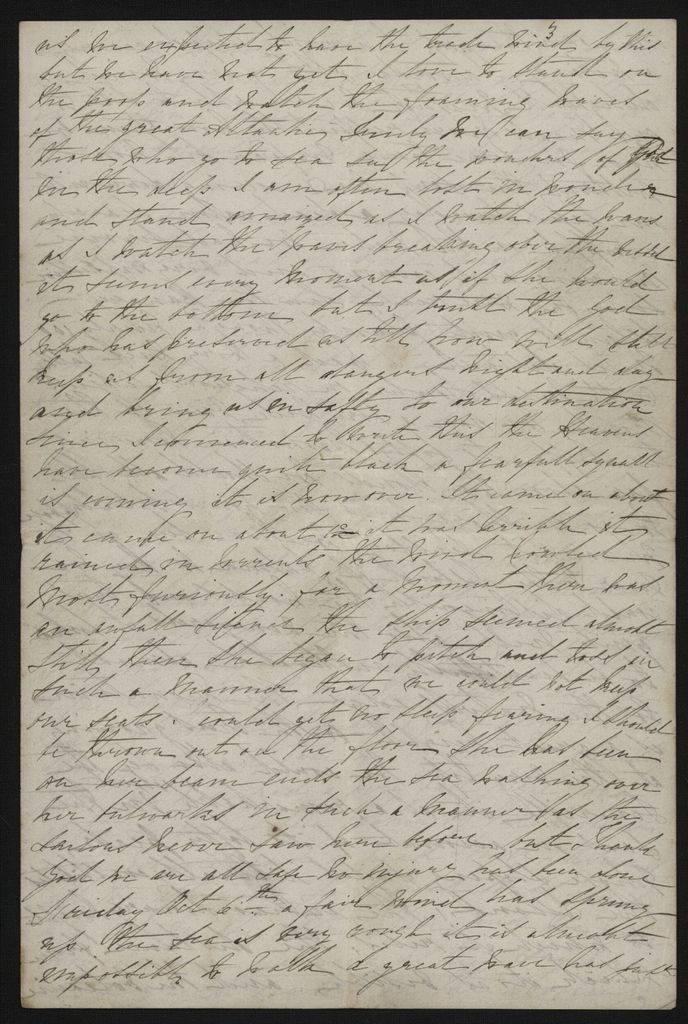 3
us we expected to have the trade wind by this
but we have not yet I love to stand on
the poop and watch the foaming waves
of the great Atlantic, truly we can say
those who go to sea see the wonders of God
in the deep I am often lost in wonder
and stand amazed as I watch the waves
as I watch the waves breaking over the vessel
it seems every moment as if she would
go to the bottom but I trust the God
who has preserved us till now will still
keep us from all dangers night and day
and bring us in safty to our destination
since I commenced to write this the Heavens
have become quite black a fearfull squall
is coming it is now over. It came on about
it came on about it was terrible it
rained in torrents the wind
most furiously. for a moment there was
an awfull silence the ship seemed almost
still, then she began to pitch and toss in
such a manner that we could not keep
our seats. could get no sleep fearing I should
be thrown out on the floor she has been
on her beam ends the sea washing over
her bulwarks in such a manner as the
sailors never saw here before but thank
God we are all safe no injury has been done
Friday Oct 6th a fair wind has sprung
up the sea is very rough it is almost
impossible to walk a great wave has just